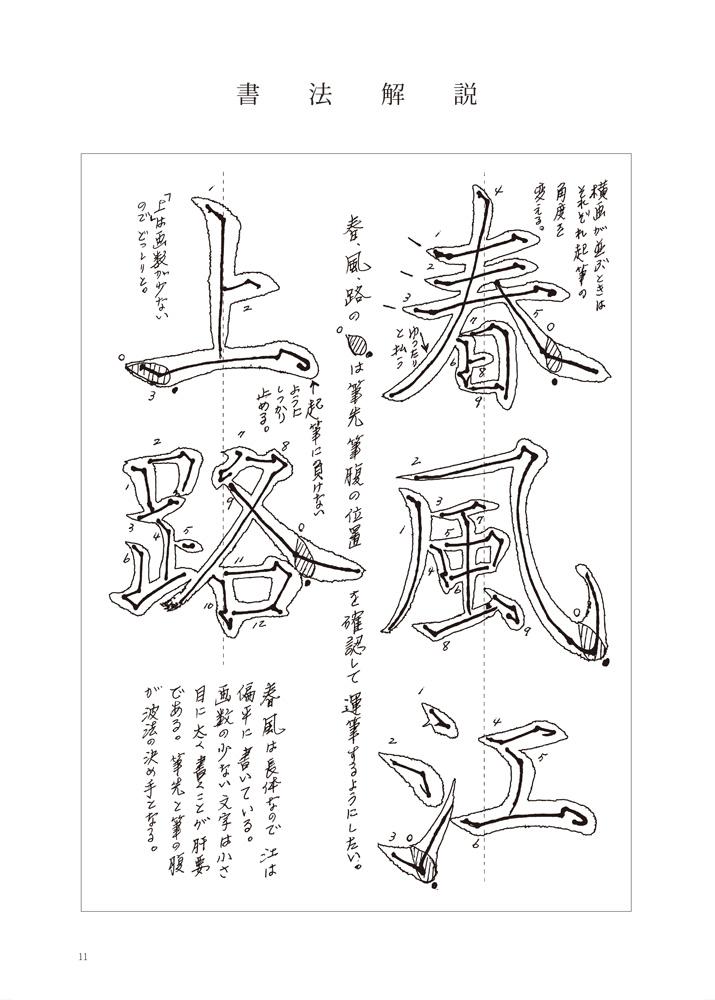 書法解説
横画が並ぶときは
それぞれ起筆の
角度を
変える。
春
風
江
ゆったり
と払う
春、風、路の
は筆先筆腹の位置
を確認して運筆するようにしたい。
上
路
「上」は画数が少ない
ので、どっしりと。
起筆に負けない
ように
しっかり
止める。
春風は長体なので江は
偏平に書いている。
画数の少ない文字は小さ
目に太く書くことが肝要
である。筆先と筆の腹
が波法の決め手となる。
11